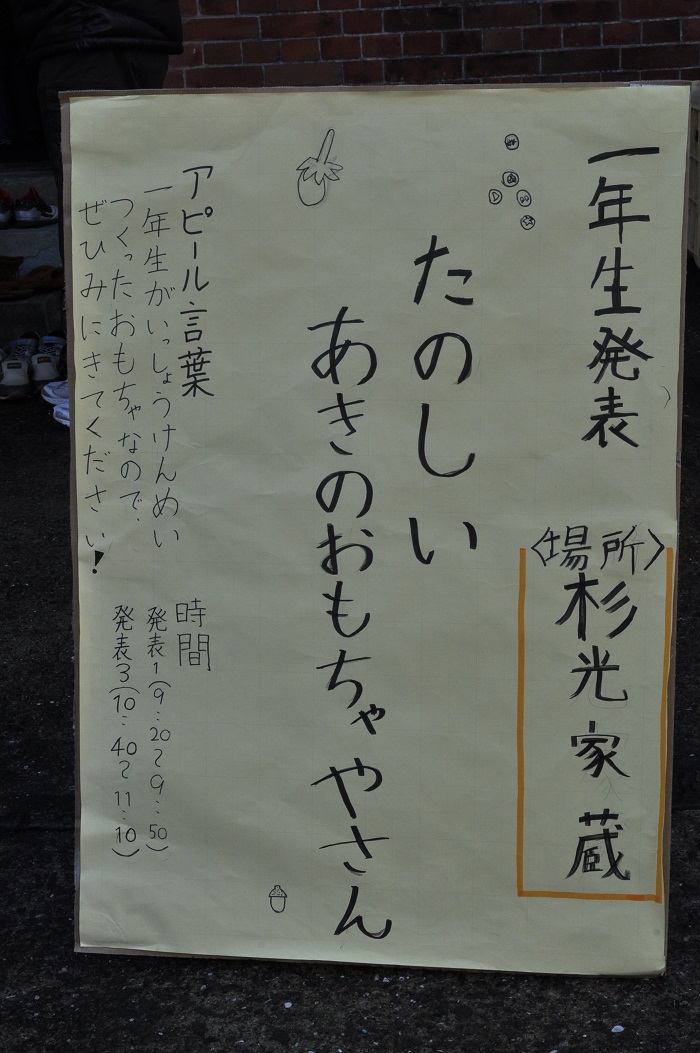 一年生発表
〈場所〉
杉光家蔵
たのしい
あきのおもちゃやさん
アピール言葉
一年生がいっしょうけんめい
つくったおもちゃなので、
ぜひみにきてください!
時間
発表1(9:20~9:50)
発表3(10:40~11:10)